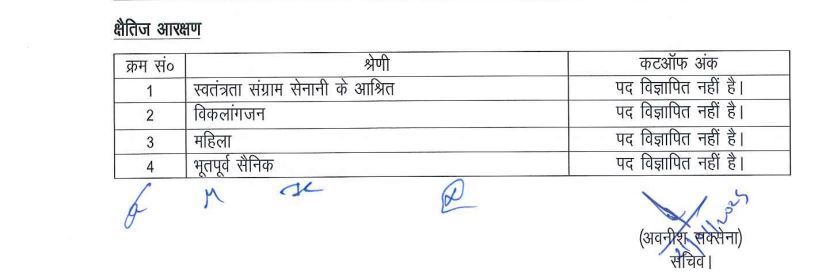 क्षैतिज आरक्षण
क्रम सं० श्रेणी कटऑफ अंक
1 स्वतंत्रता संग्राम सेनानी के आश्रित पद विज्ञापित नहीं है।
2 विकलांगजन पद विज्ञापित नहीं है।
3 महिला पद विज्ञापित नहीं है।
4 भूतपूर्व सैनिक पद विज्ञापित नहीं है।
(अवनीश सक्सेना)
सचिव।